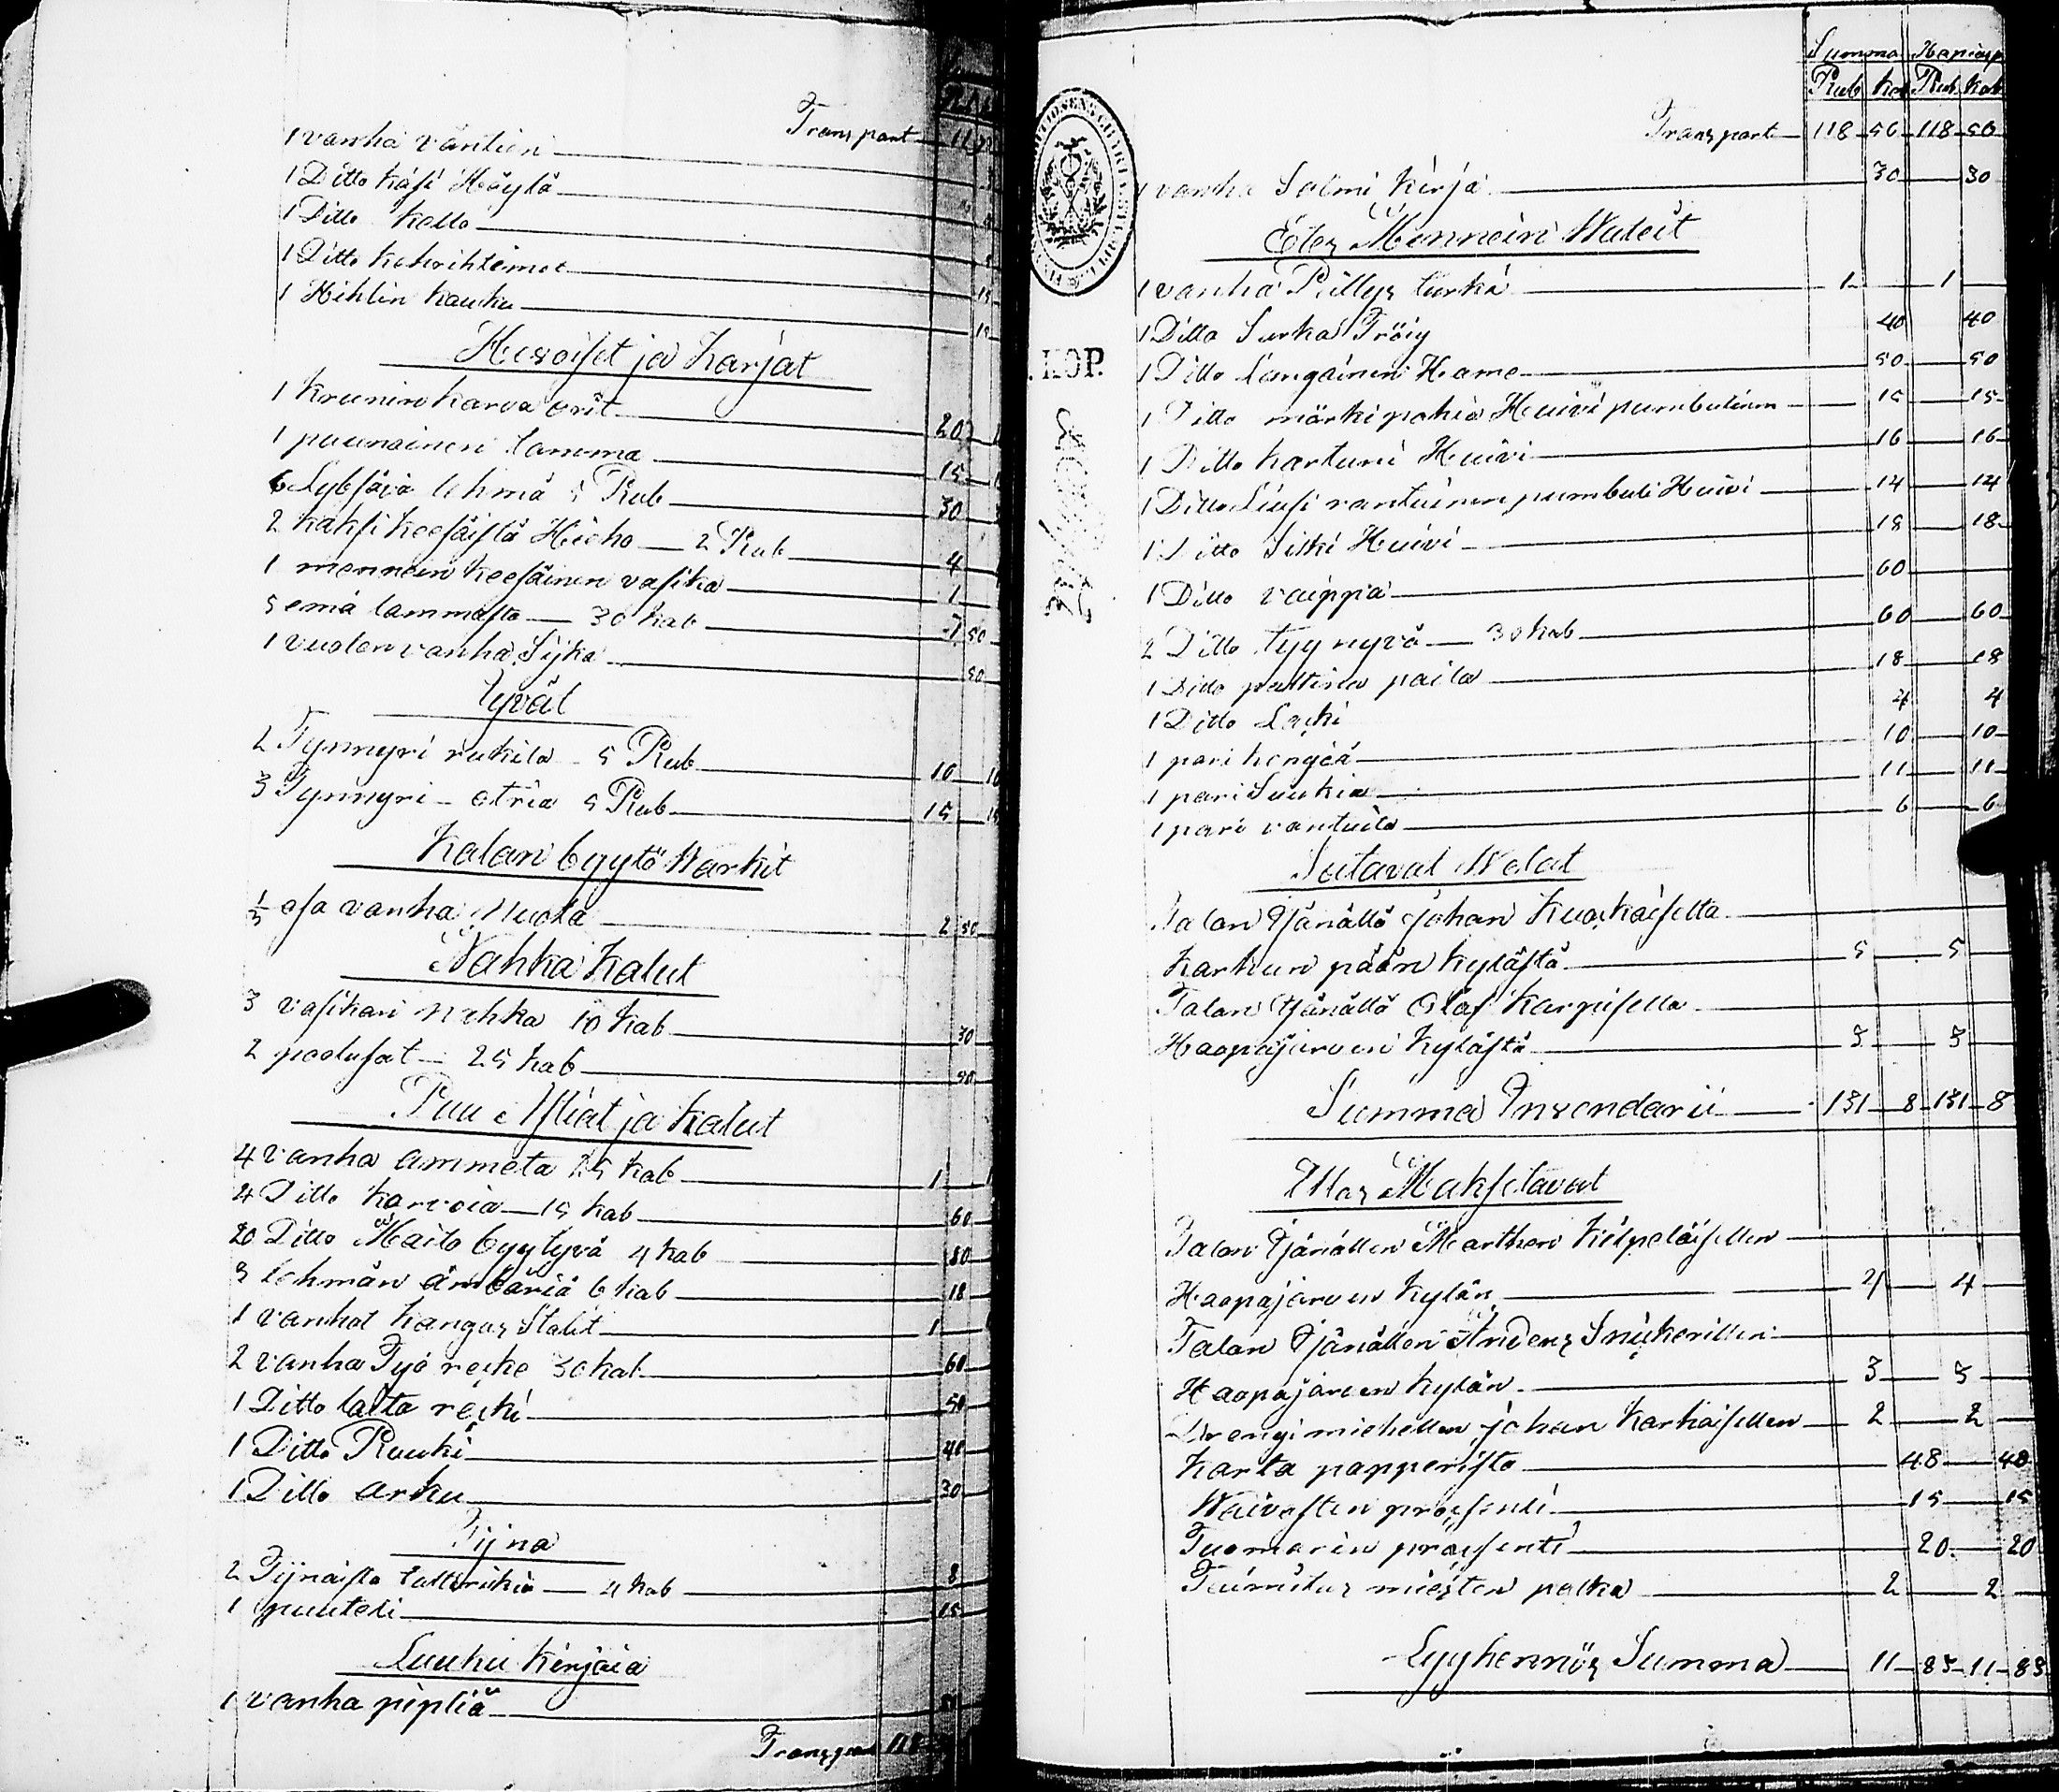 Transport 11
1 vanha väntien
1 Ditto käsi Höylä
1 Ditto kello
1 Ditto kehrihtimet
1 Hihlin kauku
Hevoiset ja Karjat
1 Krunin karva orit 20
1 puunainen tamma 15
6 Lybsävä lehmä 5 Rub 30
2 kaksi keesäistä Hieho 2 Rub 4
1 mennein keesäinen vasika 1
5 emä lammasta 30 kab 1 50
1 vuoden vanha Sijka 50
Jyvät
2 Tynnyri rukita 5 Rub 10
3 Tynnyri otria 5 Rub 15
Kalan byytö Warkit
1/3 osa vanha Nuota 2 50
Nahka Kalut
3 vasikan nahka 10 kab 30
2 poolusat 25 kab 50
Puu Astiat ja kalut
4 vanha ammeta 25 kab 1
4 Ditto korvoia 15 kab 60
20 Ditto Maito byytyvä 4 kab 80
3 lehmän ämbäriä 6 kab 18
1 vanhat kangas Stolit 1
2 vanha Työ reske 30 kab 60
1 Ditto laita reski 50
1 Ditto Ruuki 40
1 Ditto arku 30
Tijna
2 Tijnaista tallrikia 4 kab 8
1 puuteli 15
Luuku kirjaia
1 vanha pipliä
Transport 118
Summa
Rub kab Rub kab
Transport 118 56 118 56
1 vanha Salmi kirja 30 30
Edes Mennein Wateit
1 vanha Pillys turka 1 1
1 Ditto Surka Tröig 40 40
1 Ditto langainen Hame 50 50
1 Ditto märki pohia Huivi pumbulinen 15 15
1 Ditto kartuni Huivi 16 16
1 Ditto Siusi rantuinen pumbuli Huivi 14 14
1 Ditto Silki Huivi 18 18
1 Ditto vaippa 60
2 Ditto tyynyvä 30 kab 60 60
1 Ditto paltina paita 18 18
1 Ditto Laki 4 4
1 pari kengiä 10 10
1 pari Suukia 11 11
1 pari vantuita 6 6
Satavat Welat
Talon Isänällä Johan Kuoskaiselta
Karkun pään kylästä 5 5
Talon Isänällä Olaf Karpisella
Haapajärven kylästä 3 3
Summa Inventarii 131 8 131 8
Ulos Maksetavat
Talon Isänällen Marthen Kilpeläisellen
Haapajärven kylän 4 4
Talon Isänällen Anders Snikerillen
Haapajärven kylän 3 3
Drengimiehellen Johan Karhaisellen 2 2
Karta papperista 48 48
Waivasten prosenti 15 15
Tuomarin prosenti 20 20
Toimitus miesten palka 2 2
Lyyhennös Summa 11 83 11 83
KOP.